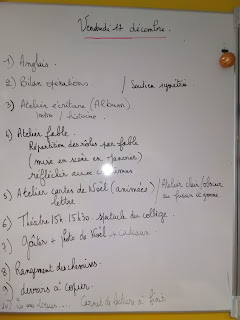 Vendredi 17 décembre.
1) Anglais.
2) Bilan opérations / Soutien symétrie
3) Atelier écriture (Album)
intro / histoire
4) Atelier fable.
Répartition des rôles par fable
(mise en scène en Janvier)
réfléchir aux costumes
5) Atelier cartes de Noël (animée) / Atelier clair/obscur
lettre au fusain et gomme
6) Théâtre 15h 15h30. spectacle du collège.
7) Goûter + fête de Noël + cadeaux
8) Rangement des chemises.
9) devoirs à copier.
10) Cahier de lecture à finir